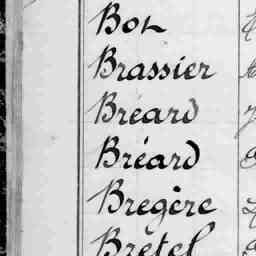 Bon
Brassier
Bréard
Bréard
Bregère
Bretel